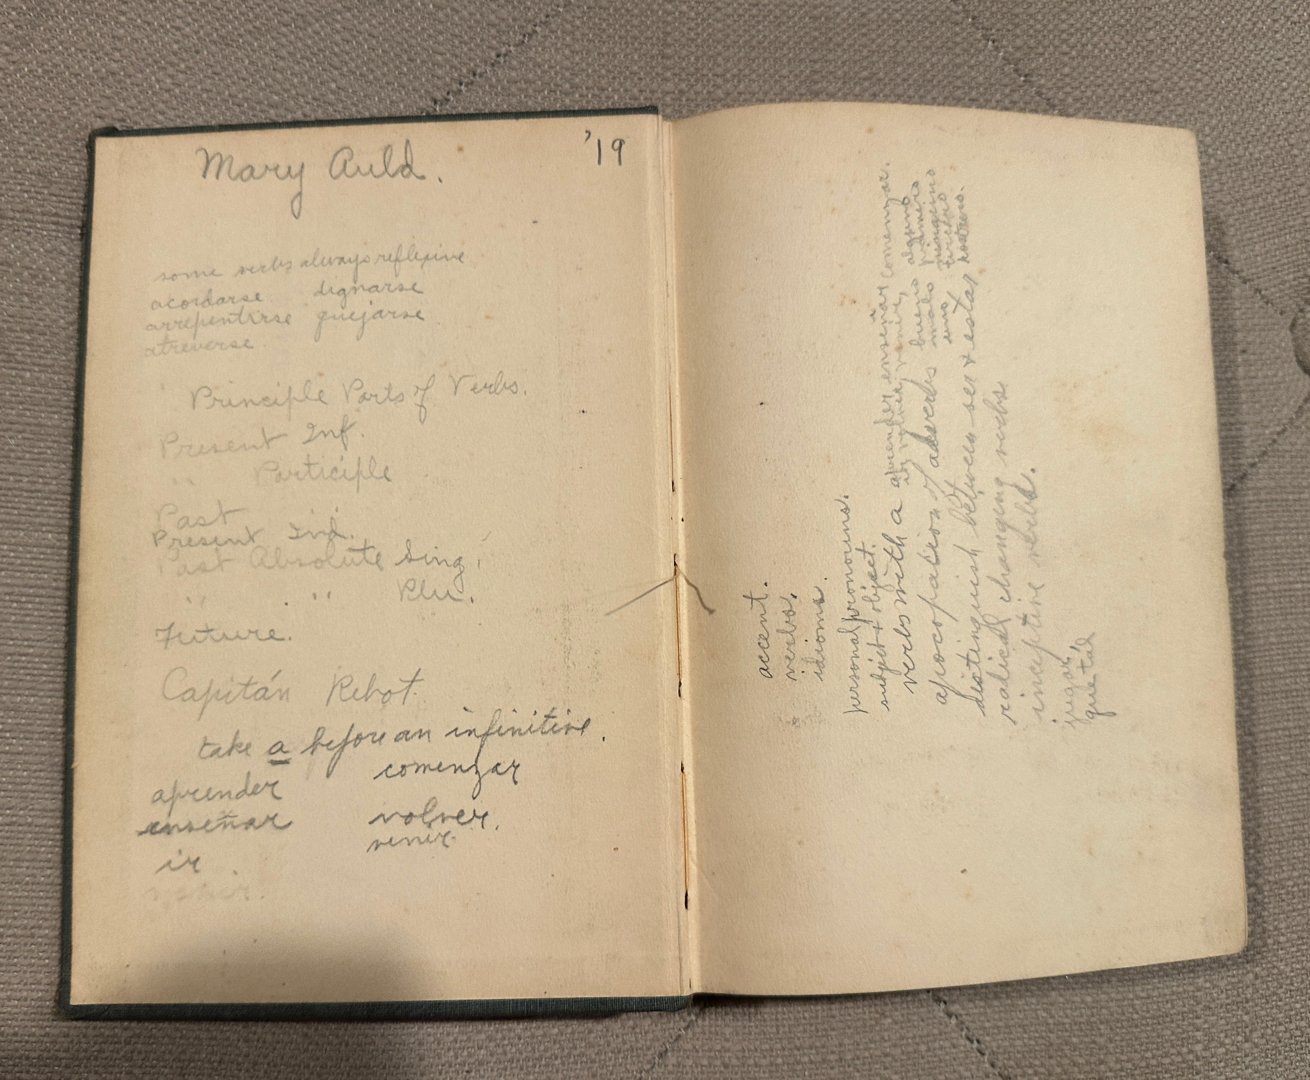 Mary Auld.
'19
some verbs always reflexive
acordarse dignarse
arrepentirse quejarse
atreverse
Principle Parts of Verbs.
Present Inf.
" Participle
Past
Present Ind.
Past Absolute Sing.
" " Plu.
Future.
Capitán Ribot
take a before an infinitive.
aprender comenzar
enseñar volver.
ir venir.
venir.
accent.
verbs.
idioms.
personal pronouns.
subject + object.
verbs with a aprender, enseñar comenzar.
ir, volver, venir,
apocopation of adverbs bueno alguno
malo primero
uno ninguno
tercero
postrero.
distinguish between ser + estar
radical changing verbs
inceptive verbs.
jugar,
que tal